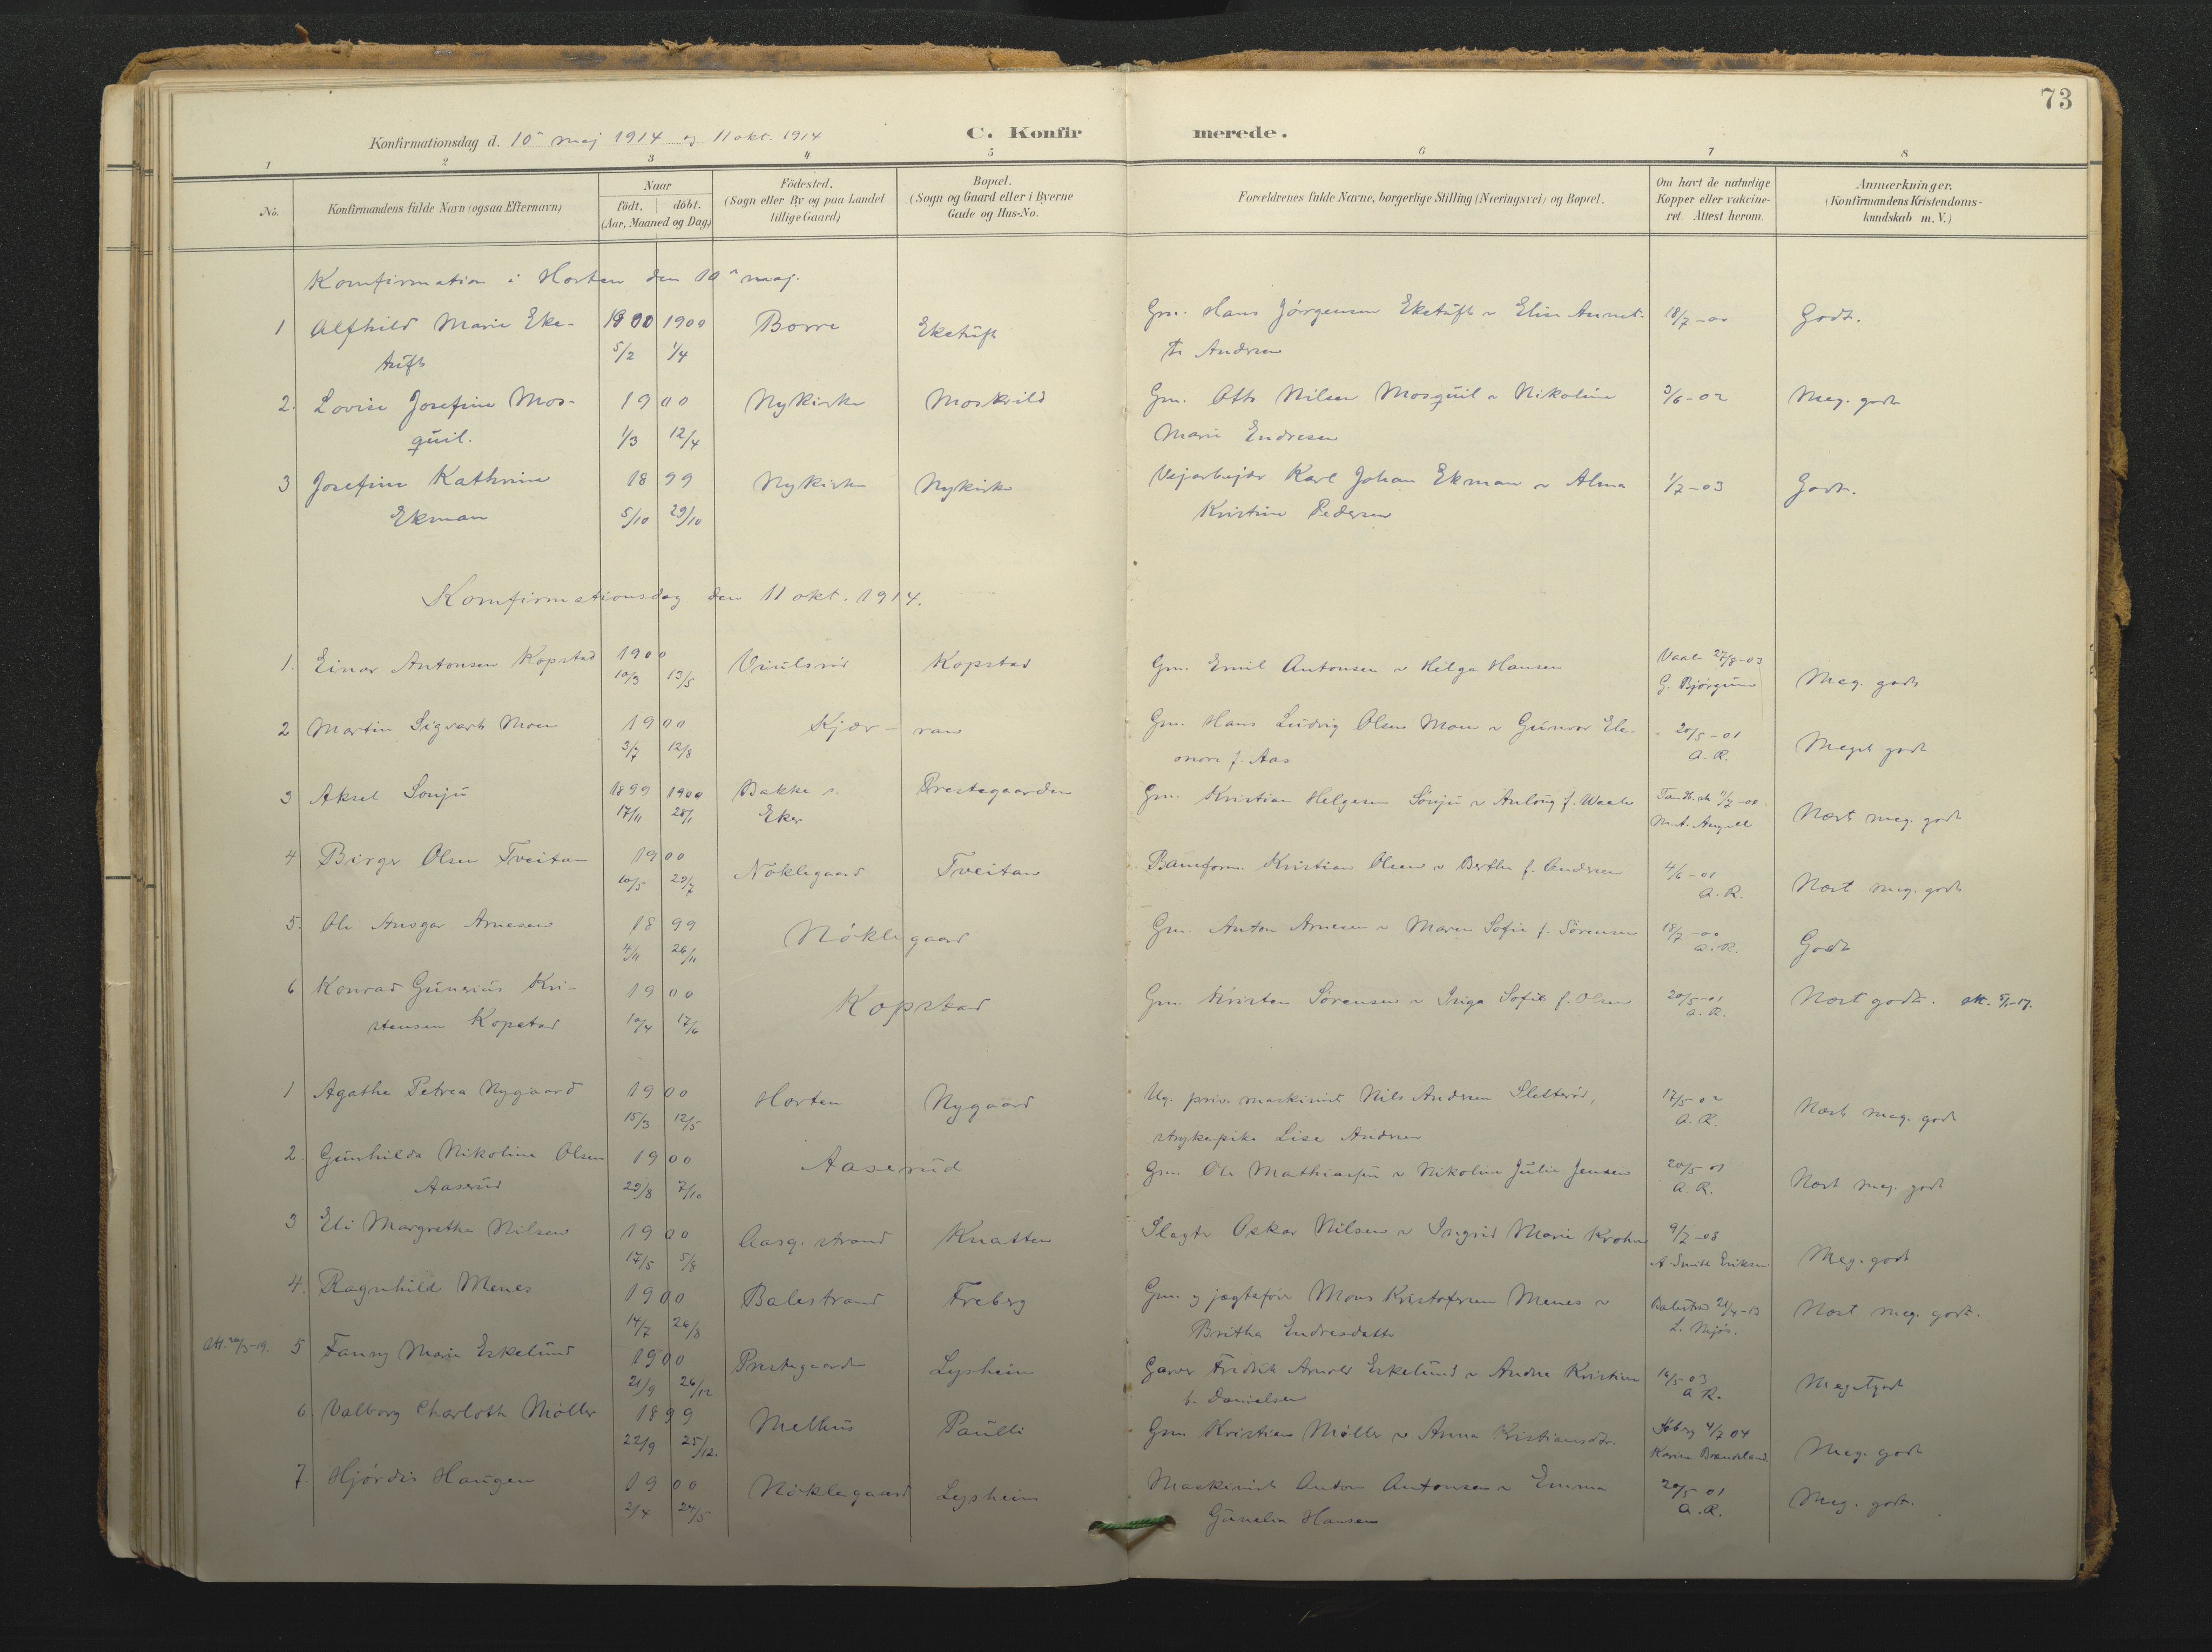 73
Konfirmationsdag d. 10 maj 1914 og 11 okt. 1914
C. Konfirmerede.
1 2 3 4 5 6 7 8
No.
Konfirmandens fulde Navn (ogsaa Efternavn)
Naar
født. døbt.
(Aar, Maaned og Dag)
Födested.
(Sogn eller By og paa Landet
tillige Gaard)
Bopæl.
(Sogn og Gaard eller i Byerne
Gade og Hus-No.
Forældrenes fulde Navne, borgerlige Stilling (Næringsvei) og Bopæl.
Om havt de naturlige
Kopper eller vakcine-
ret. Attest herom.
Anmærkninger.
(Konfirmandens Kristendoms-
kundskab m. V.)
Komfirmation i Horten den 10 maj.
1 Alfhild Marie Eke- 1900 1900 Borre Eketuft Gm. Hans Jörgensen Eketuft & Elin Annet- 18/7-00 Godt.
tuft 5/2 1/4 te Andrsen
2. Lovise Josefine Mos- 1900 Nykirke Moskvild Gm. Otto Nilsen Mosquil & Nikoline 3/6-02 Meg. godt
quil. 1/3 12/4 Marie Endresen
3 Josefine Kathrine 1899 Nykirke Nykirke Vejarbejder Karl Johan Ekman & Alma 1/7-03 Godt.
Ekman 5/10 29/10 Kristine Pedersen
Komfirmationsdag den 11 okt. 1914.
1. Einar Antonsen Kopstad 1900 Kopstad Gm. Emil Antonsen & Helga Hansen Vaale 27/8-03
10/3 13/5 G. Bjørgum Meg. godt
2 Martin Sigvart Moen 1900 Kjær-ran Gm. Hans Ludvig Olsen Moen & Gunvor Ele- 20/5-01
3/7 12/8 onore f. Aas A. R. Meget godt
3 Aksel Sonju 1899 1900 Bakke s. Prestegaarden Gm. Kristian Helgesen Sönju & Anlaug f. Waale
17/11 28/1 Eker M. A. Angell Næst meg. godt
4 Birger Olsen Tveitan 1900 Nöklegaard Tveitan Baneform. Kristian Olsen & Berthe f. Andersen 4/6-01
10/5 29/7 A. R. Næst meg. godt
5. Ole Ansgar Arnesen 1899 Nöklegaard Gm. Anton Arnesen & Maren Sofie f. Sörensen 18/7-00
4/11 26/11 A. R. Godt
6 Konrad Gunerius Kri- 1900 Kopstad Gm. Kristen Sörensen & Inga Sofie f. Olsen 20/5-01 Næst godt. att. 5/1-17.
stensen Kopstad 10/4 17/6 A. R.
1 Agathe Petrea Nygaard 1900 Horten Nygaard Ug. priv. maskinist Nils Andersen Sletterød, 17/5-02
15/3 12/5 strykepike Lise Andrsen A. R. Næst meg. godt
2. Gunhilda Nikoline Olsen 1900 Aaserud Gm. Ole Mathiassen & Nikoline Julie Jensen 20/5-01
Aaserud 29/8 7/10 A. R. Næst meg. godt
3 Eli Margrethe Nilsen 1900 Aasg. strand Knatten Slagter Oskar Nilsen & Ingrid Marie Krohn 9/7-08
17/5 5/8 A. Smith Eriksen Meg. godt
4. Ragnhild Menes 1900 Balestrand Freberg Gm. og jægtefører Mons Kristofersen Menes &
14/7 26/8 Britha Endresdatter L. Mjös. Næst meg. godt.
att. 20/5-19. 5 Fanny Marie Eskelund 1900 Prestegaarden Lysheim Garver Fredrik Arnold Eskelund & Andrea Kristine 16/5-03
21/9 26/12 f. Danielsen A. R. Meget godt
6. Valborg Charlotte Möller 1899 Melhus Paulli Gm. Kristian Möller & Anna Kristiansdtr. 4/7 04
22/9 25/12. Meg. godt
7. Hjördis Haugen 1900 Nöklegaard Lysheim Maskinist Anton Antonsen & Emma 20/5 01
2/4 27/5 Gunelia Hansen A. R. Meg. godt.